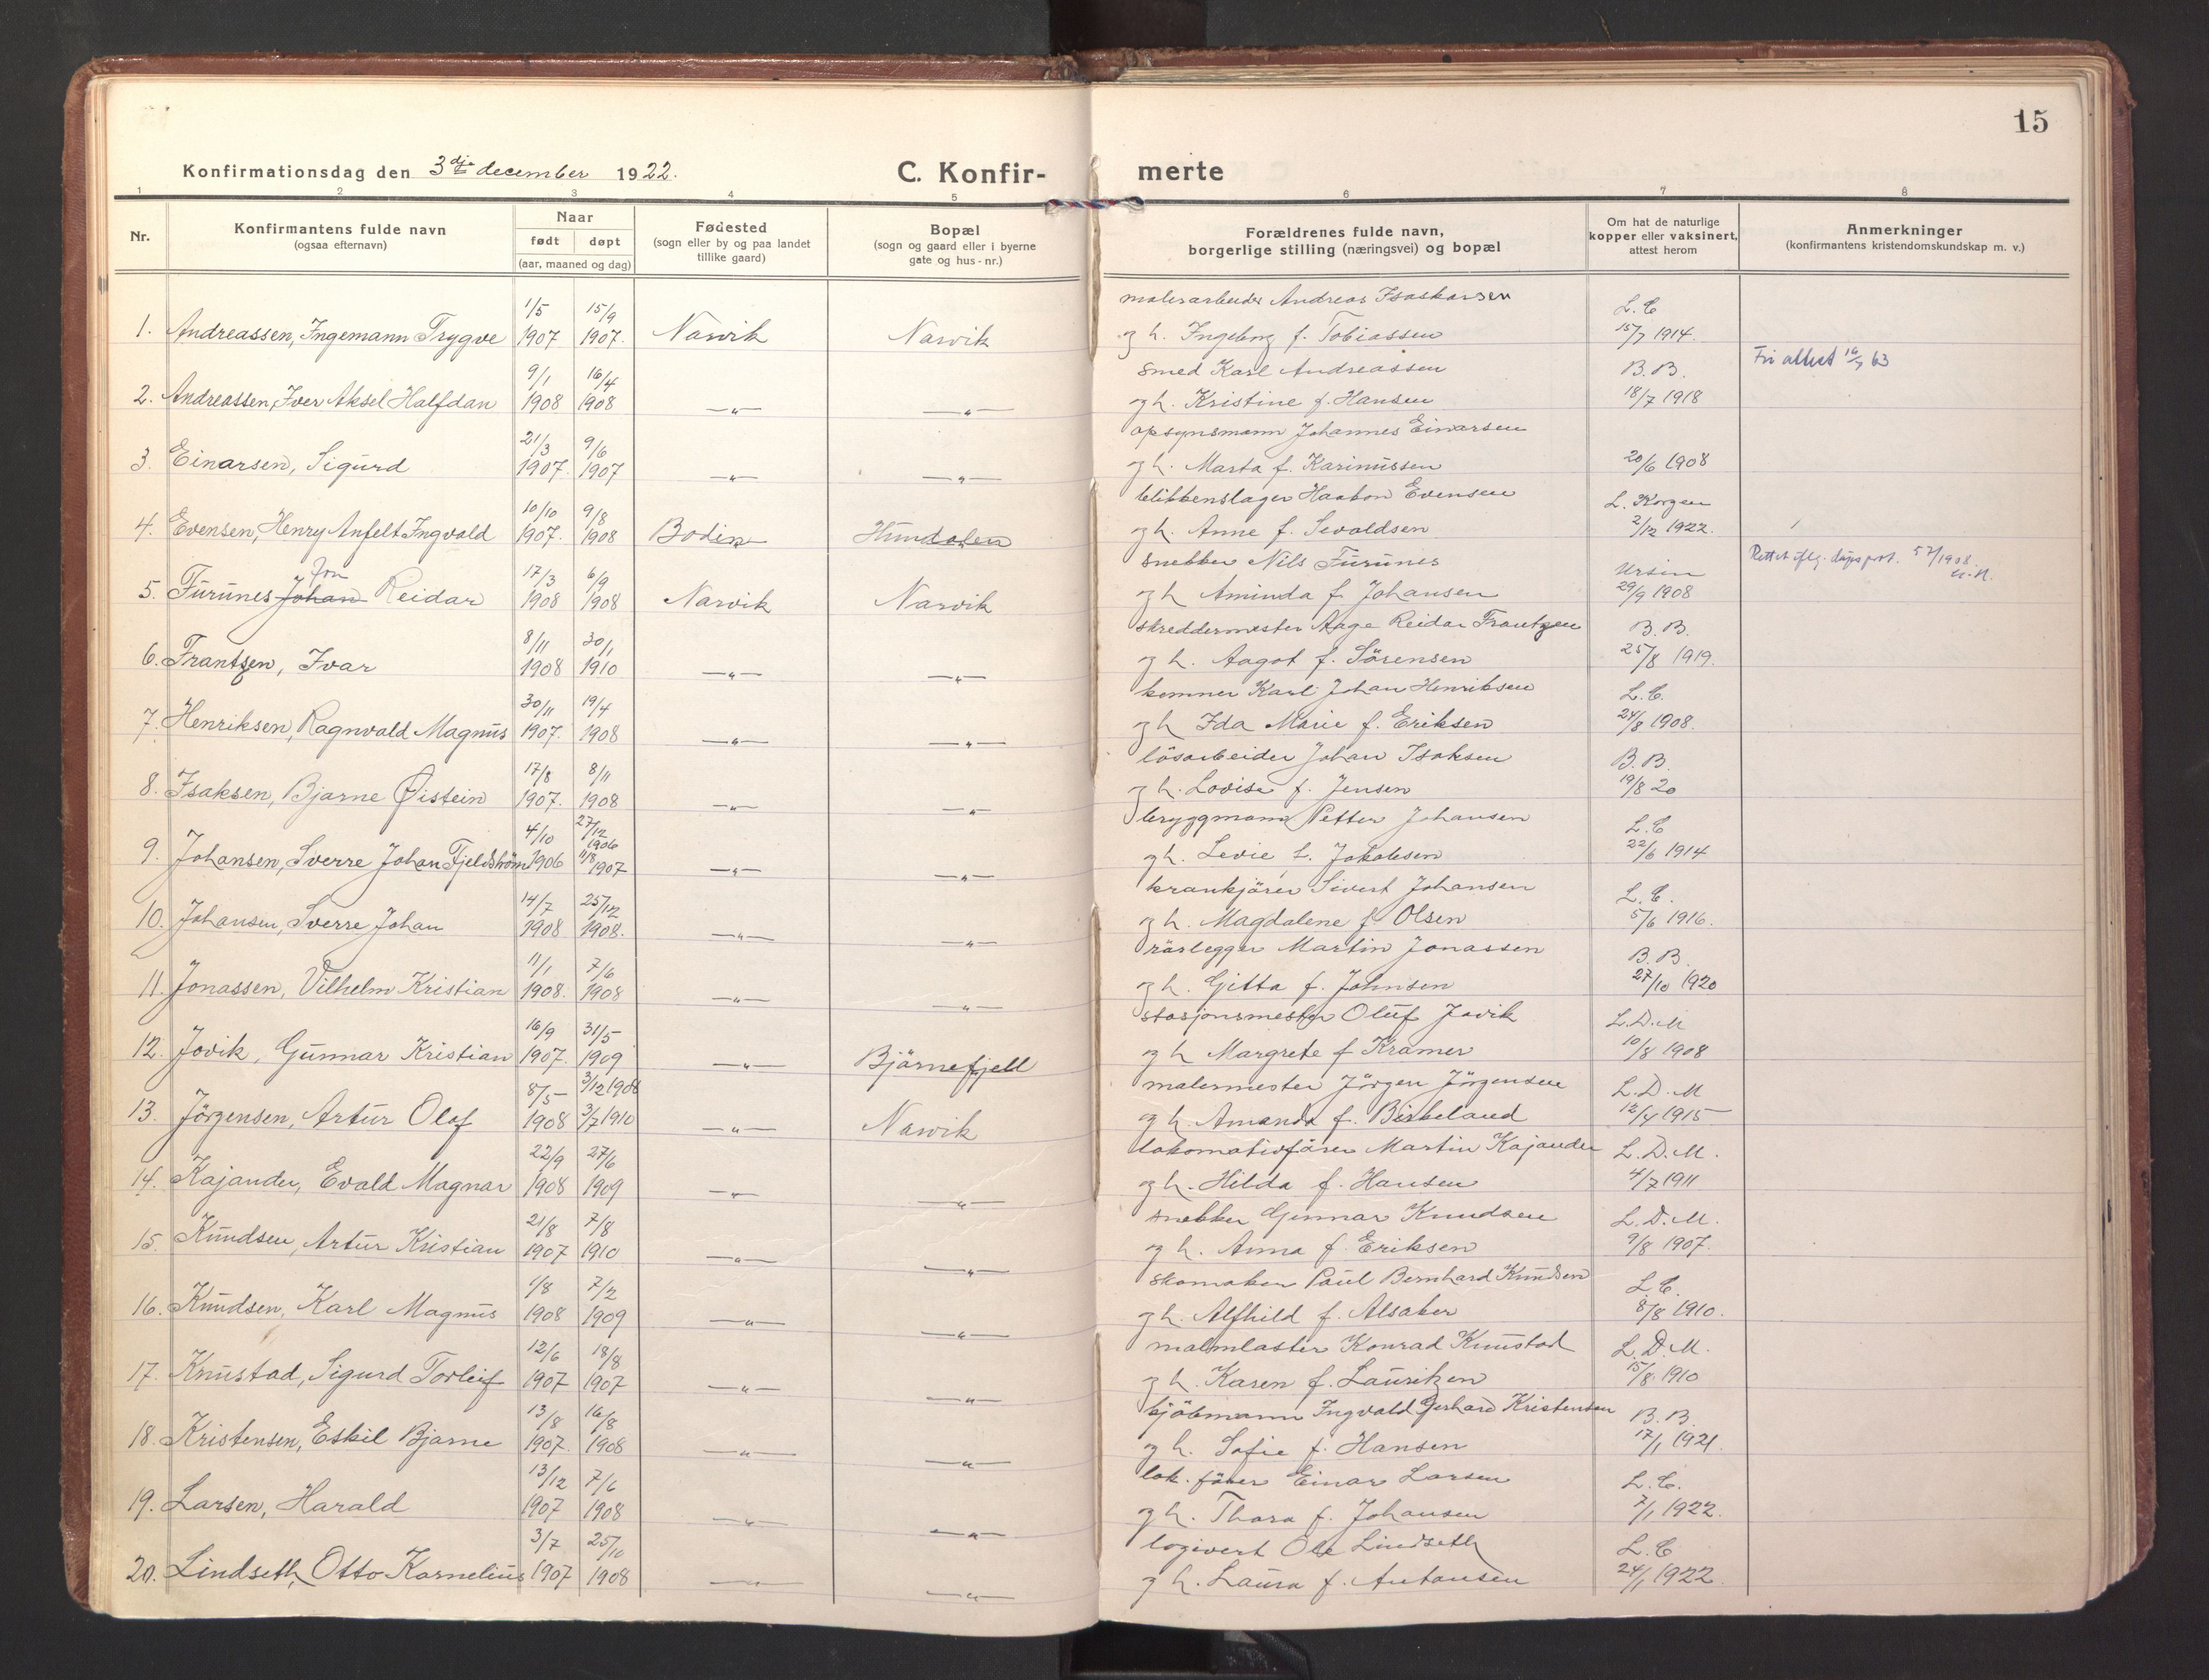 15
Konfirmationsdag den 3dje december 1922.
C. Konfir-
merte
1 2 3 4 5 6 7 8
Nr.
Konfirmantens fulde navn
(ogsaa efternavn)
Naar
født døpt
(aar, maaned og dag)
Fødested
(sogn eller by og paa landet
tillike gaard)
Bopæl
(sogn og gaard eller i byerne
gate og hus-nr.)
Forældrenes fulde navn,
borgerlige stilling (næringsvei) og bopæl
Om hat de naturlige
kopper eller vaksinert,
attest herom
Anmerkninger
(konfirmantens kristendomskundskap m. v.)
1/5 15/9 Andreas Isaskarsen L.C.
1. Andreassen, Ingemann Trygve 1907 1907. Narvik Narvik og h. Ingeborg f. Tobiassen 15/7 1914.
9/1 16/4 smed Karl Andreassen B.B. Fri attest 63
2. Andreassen, Iver Aksel Halfdan 1908 1908 —〃— —〃— og h. Kristine f. Hansen 18/7 1918
21/3 9/6 opsynsmann Johannes Einarsen
3. Einarsen, Sigurd 1907. 1907 —〃— —〃— og h. Marta f. Karinussen 20/6 1908
10/10 9/8 blikkenslager Haakon Evensen L. Korgen
4. Evensen, Henry Anfelt Ingvald 1907. 1908 Bodin Hundalen og h. Anne f. Sevaldsen 2/12 1922.
Jon 17/3 6/9 snekker Nils Furunes Ursin Rettet iflg. daapsprot. 57/1908
5. Furunes Johan Reidar 1908 1908 Narvik Narvik og h Aminda f. Johansen 29/9 1908
8/11 30/1 skreddermester Aage Reidar Frantzen B.B.
6. Frantzen, Ivar 1908 1910 —〃— —〃— og h. Aagot f. Sörensen 25/8 1919.
30/11 19/4 kemner Karl Johan Henriksen L.C.
7. Henriksen, Ragnvald Magnus 1907. 1908 —〃— —〃— og h Ida Marie f. Eriksen 24/8 1908.
17/8 8/11 lösarbeider Johan Isaksen B.B.
8. Isaksen, Bjarne Øistein 1907. 1908 —〃— —〃— og h. Lovise f. Jensen 19/8 20
4/10 27/12 1906 bryggmann Petter Johansen L.C
9. Johansen, Sverre Johan Fjeldström 1906 11/8 1907 —〃— —〃— og h. Levie f. Jakobsen 22/6 1914
14/7 25/12 krankjörer Sivert Johansen L.C.
10. Johansen, Sverre Johan 1908 1908. —〃— —〃— og h. Magdalene f. Olsen 5/6 1916.
11/1 7/6 rörlegger Martin Jonassen B.B.
11. Jonassen, Vilhelm Kristian 1908. 1908 —〃— —〃— og h. Gitta f. Johnsen 27/10 1920
16/9 31/5 stasjonsmester Oluf Jovik L.D.M
12. Jovik, Gunnar Kristian 1907. 1909 —〃— Björnefjell og h Margrete f Kramer 10/8 1908
8/5 3/12 1908 malermester Jörgen Jörgensen L.D.M
13. Jörgensen, Artur Olaf 1908 3/7 1910 —〃— Narvik og h. Amanda f. Birkeland 12/4 1915
22/9 27/6 lokomotivförer Martin Kajander L.D.M.
14. Kajander, Evald Magnar 1908 1909 —〃— —〃— og h. Hilda f. Hansen 4/7 1911
21/8 7/8 snekker Gunnar Knudsen L.D.M.
15. Knudsen, Artur Kristian 1907 1910 —〃— —〃— og h. Anna f. Eriksen 9/8 1907.
1/8 7/2 skomaker Paul Bernhard Knudsen L.C.
16. Knudsen, Karl Magnus 1908 1909 —〃— —〃— og h. Alfhild f. Alsaker 8/8 1910.
12/6 18/8 malmlaster Konrad Knustad L.D.M.
17. Knustad, Sigurd Torleif 1907 1907 —〃— —〃— og h. Karen f. Lauritzen 15/8 1910
13/8 16/8 kjöbmann Ingvald Gerhard Kristensen B.B.
18. Kristensen, Eskil Bjarne 1907. 1908 —〃— —〃— og h. Sofie f. Hansen 17/1 1921.
13/12 7/6 lok. förer Einar Larsen L.C.
19. Larsen, Harald 1907 1908 —〃— —〃— og h. Thora f. Johansen 7/1 1922.
3/7 25/10 logivert Ole Lindseth L.C
20. Lindseth, Otto Kornelius 1907 1908 —〃— —〃— og h. Laura f. Antonsen 24/1 1922.